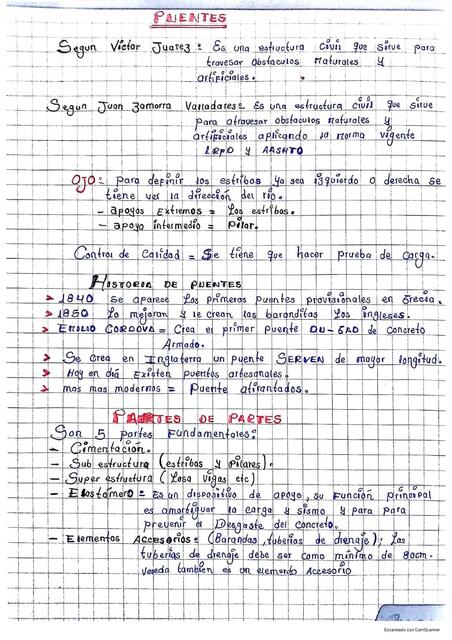 PUENTES
Segun Victor Juarez = Es una estructura civil que sirve para
travesar obstaculos naturales y
artificiales.
Segun Juan Zamorra Valladares = Es una estructura civil que sirve
para atravesar obstaculos naturales y
artificiales aplicando la norma vigente
LRFD y AASHTO
OJO: para definir los estribos ya sea izquierdo o derecha se
tiene ver la dirección del rio.
- apoyos Extremos = Los estribos.
- apoyo intermedio = Pilar.
Control de Calidad = Se tiene que hacer prueba de carga.
HISTORIA DE PUENTES
> 1840 se aparece Los primeros puentes provisionales en Grecia.
> 1850 Lo mejoran y le crean las baranditas Los ingleses.
> EMILIO CORDOVA = Crea el primer puente de concreto
Armado.
> Se crea en Inglaterra un puente SERVEN de mayor longitud.
> Hoy en día Existen puentes artesanales.
> mas mas modernos = Puente atirantados.
PARTES DE PARTES
Son 5 partes Fundamentales:
- Cimentación.
- Sub estructura (estribos y pilares).
- Super estructura (Losa vigas etc)
- Elastómero = Es un dispositivo de apoyo, su Función principal
es amortiguar la carga y sismo y para para
prevenir el Desgaste del concreto.
- Elementos Accesorios = (Barandas, tuberias de drenaje); Las
tuberias de drenaje debe ser como mínimo de 80cm.
vereda tambien es un elemento Accesorio
Escaneado con CamScanner